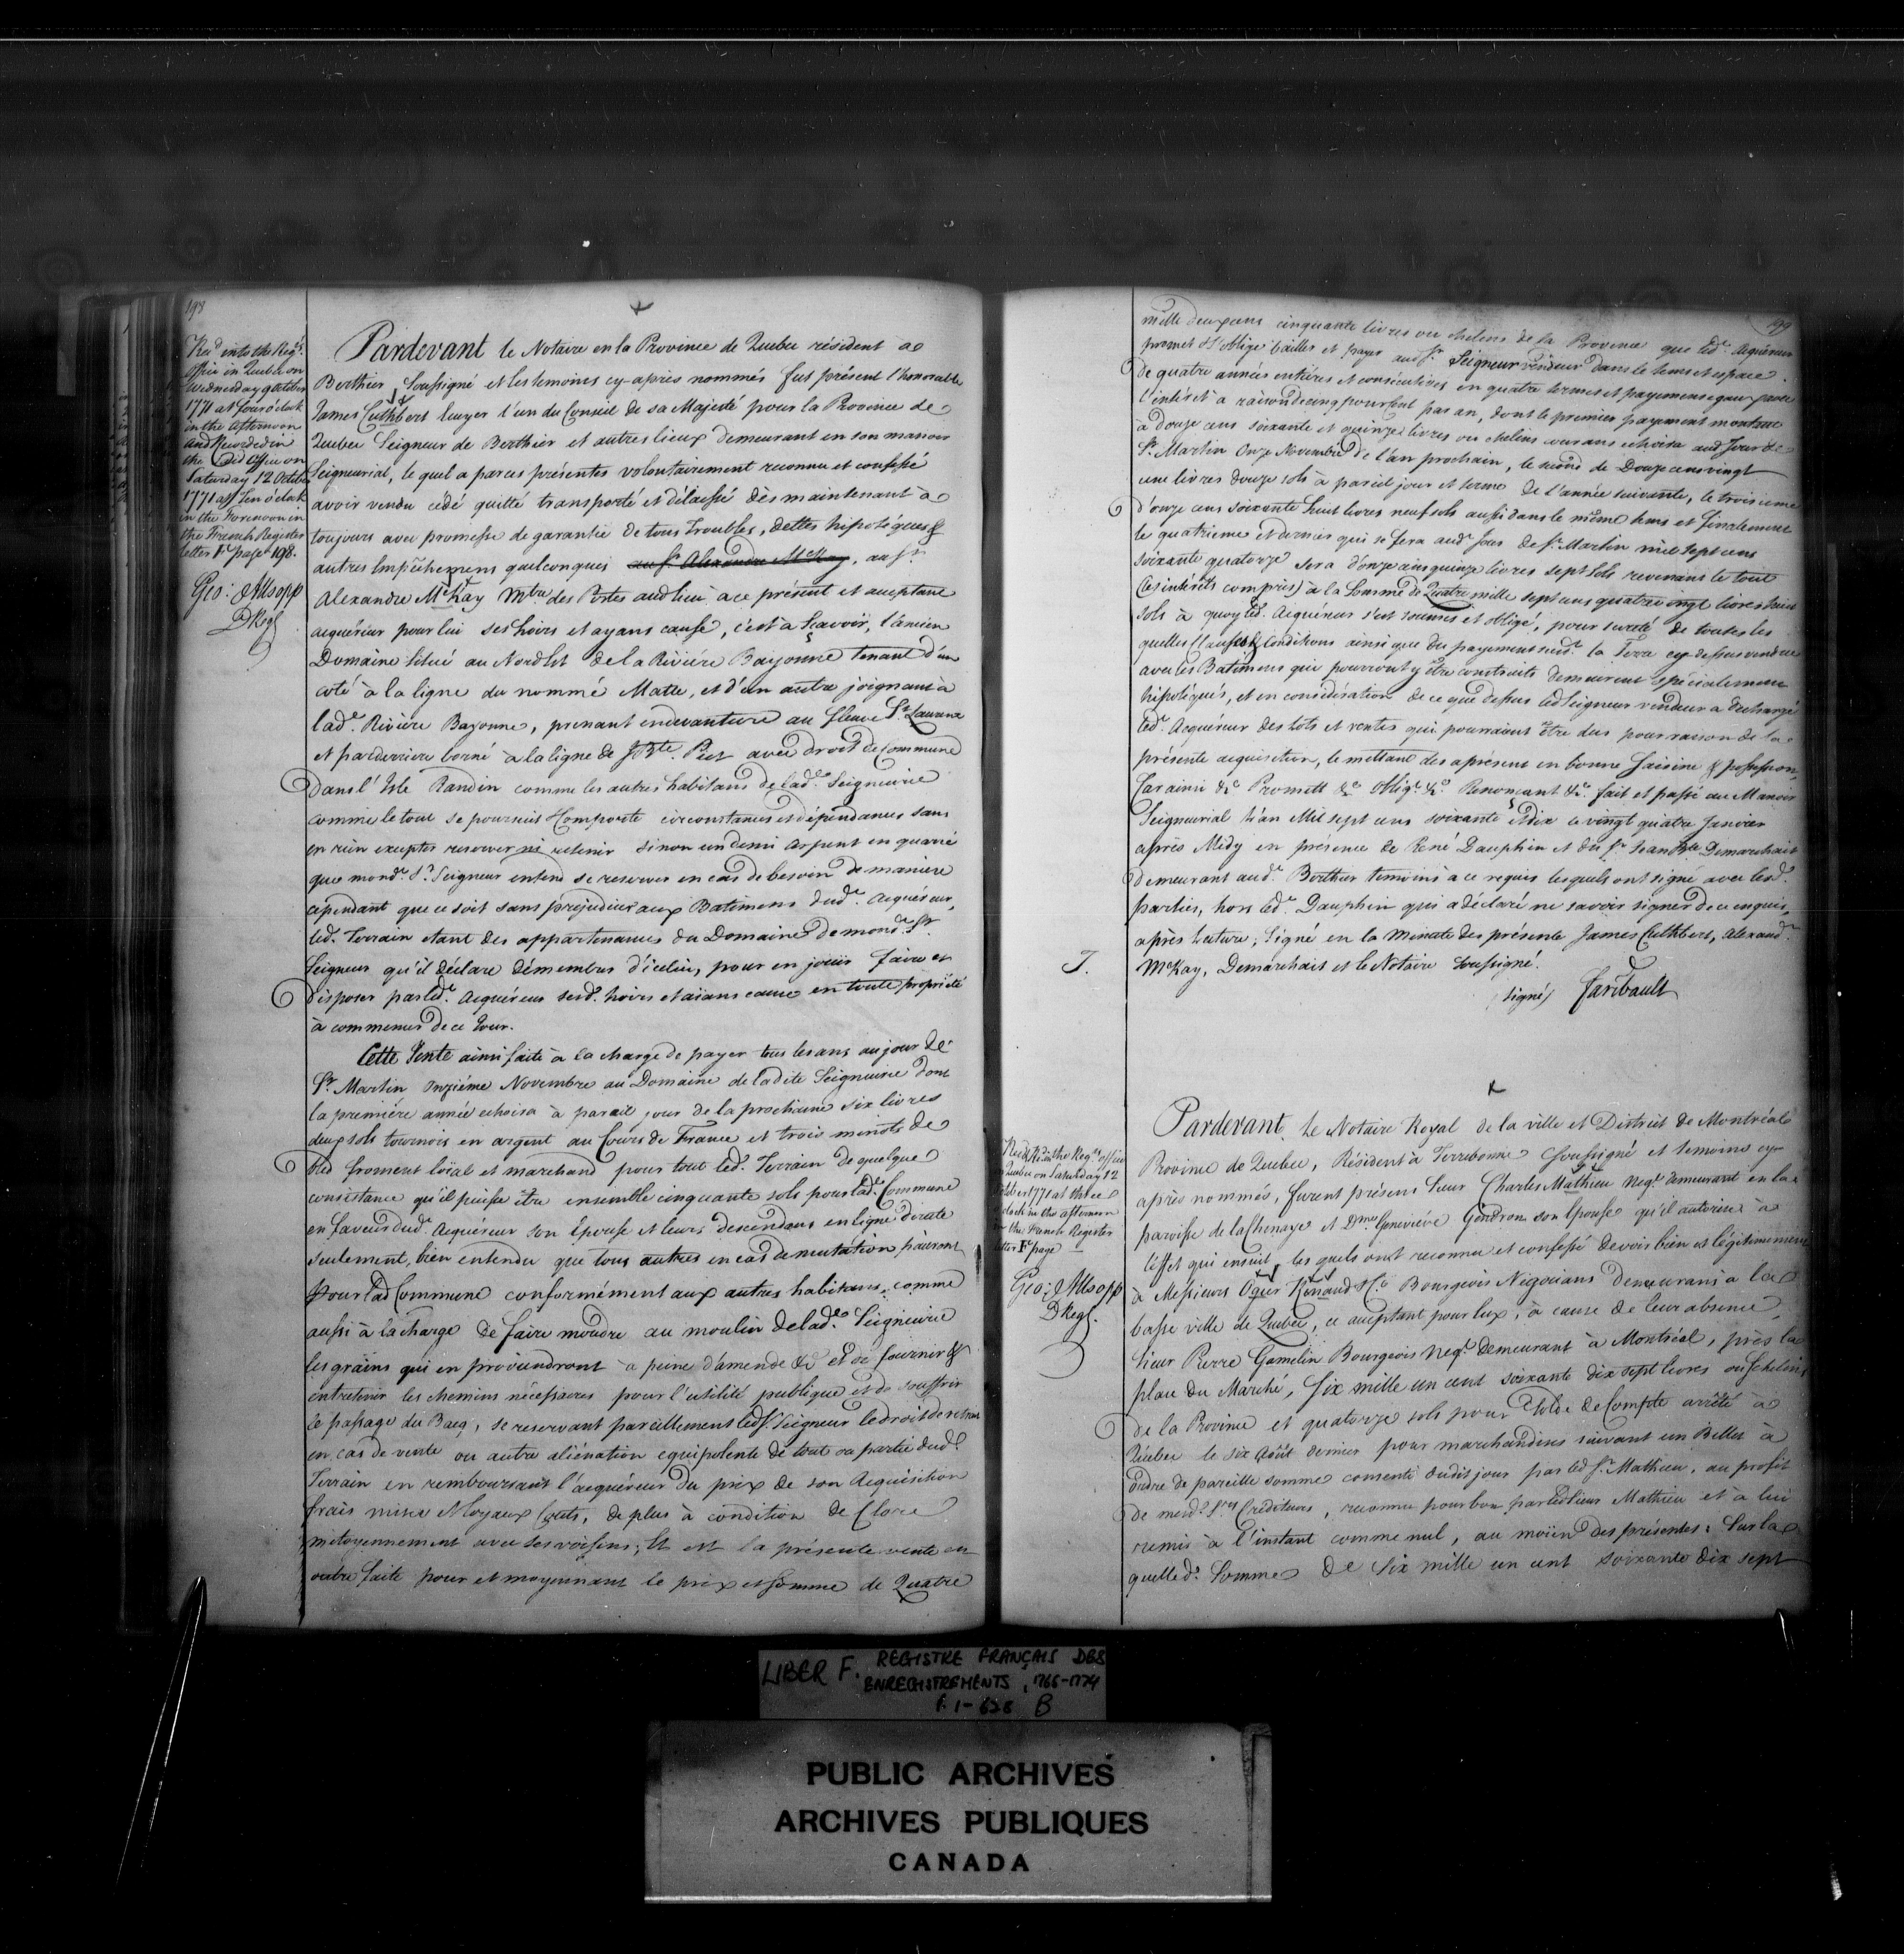 198
Rec.d into the Reg.rs
office in Quebec on
Wednesday 9 october
1771 at four o'clock
in the afternoon
and Recorded in
the said Office on
Saturday 12 October
1771 at Ten o'clock
in the Forenoon in
the French Register
letter F page 198.
Geo: Allsopp
D Reg.
Pardevant le Notaire en la Province de Quebec résident a
Berthier Soussigné et les temoins cy-après nommés fut présent l'honorable
James Cuthbert Ecuyer l'un du Conseil de sa Majesté pour la Province de
Quebec Seigneur de Berthier et autres lieux demeurant en son manoir
Seigneurial, le quel a par ces présentes volontairement reconnu et confessé
avoir vendu cédé quitté transporté et délaissé dès maintenant à
toujours avec promesse de garantie de tous Troubles, dettes hipotéques &
autres Empêchemens quelconques au S.r Alexandre McKay, au S.r
Alexandre McKay M.tre des Postes aud lieu a ce présent et acceptant
acquéreur pour lui ses hoirs et ayans cause, c'est à Sçavoir, l'ancien
Domaine Situé au Nord Est de la Rivière Bayonne tenant d'un
coté à la ligne du nommé Matte, et d'un autre joignant à
lad.e Rivière Bayonne, prenant en devanture au fleuve S.t Laurent
et par derriere borné à la ligne de J B.te Piet avec droit de Commune
dans l'Isle Randin comme les autres habitans de lad.e Seigneurie
comme le tout se poursuit & Comporte circonstances et dépendances sans
en rien excepter reserver ni retenir sinon un demi arpent en quarré
que mond.t S.r Seigneur entend se reserver en cas de besoin de maniere
cependant que ce soit sans préjudicier aux Batimens dud.t Acquéreur,
led. Terrain etant des appartenances du Domaine de mond.t S.r
Seigneur qu'il déclare démembrer d'icelui, pour en jouir faire et
disposer par led.t Acquéreur sesd. hoirs et aïans cause en toute propriété
à commencer de ce Jour.
Cette Vente ainsi faite à la charge de payer tous les ans au jour de
S.t Martin onzième Novembre au Domaine de ladite Seigneurie dont
la première année echoira à pareil jour de la prochaine six livres
deux sols tournois en argent au Cours de France et trois minots de
bled froment loïal et marchand pour tout led. Terrain de quelque
consistance qu'il puisse être ensemble cinquante sols pour lad.e Commune
en faveur dud.t Acquéreur son Epouse et leurs descendans en ligne directe
seulement, bien entendu que tous autres en cas de mutation païront
pour lad Commune conformément aux autres habitans, comme
aussi à la charge de faire moudre au moulin de lad.e Seigneurie
les grains qui en proviendront à peine d'amende &c et de fournir &
entretenir les chemins nécessaires pour l'utilité publique et de souffrir
le passage du Bacq, se reservant pareillement led S.r Seigneur le droit de retrait
en cas de vente ou autre aliénation equipolente de tout ou partie dud.t
Terrain en remboursant l'acquéreur du prix de son Acquisition
frais mises & Loyaux Couts, de plus à condition de Clore
mitoyennement avec ses voisins; Et est la présente vente en
outre faite pour et moyennant le prix et somme de Quatre
199
mille deux cens cinquante livres ou chelins de la Province que led.t Acquéreur
promet et S'oblige bailler et payer aud S.r Seigneur vendeur dans le tems et espace
de quatre années entières et consécutives en quatre termes et payemens egaux
l'intérêt à raison de cinq pour Cent par an, dont le premier payement montant
à douze cens soixante et quinze livres ou chelins courans echoira aud Jour de
S.t Martin Onze Novembre de l'an prochain, le second de Douze cens vingt
une livres douze sols à pareil jour et terme de l'année suivante, le troisieme
d'onze cens soixante huit livres neuf sols aussi dans le même tems et finalement
le quatrieme et dernier qui se fera aud.t Jour de S.t Martin mil sept cens
soixante quatorze sera d'onze cens quinze livres sept Sols revenant le tout
(les intérêts compris) à la Somme de Quatre mille sept cens quatre vingt livres huit
Sols à quoy led.t Acquéreur s'est soumis et obligé, pour sureté de toutes les
quelles Clauses & Conditions ainsi que du payement susd.t la Terre cy dessus vendue
avec les Batimens qui pourront y être construits demeurent spécialement
hipotéqués, et en considération de ce que dessus led Seigneur vendeur a dechargé
led.t Acquéreur des lots et ventes qui pourraient être dus pour raison de la
présente acquisition, le mettant des a présent en bonne Saisine & possession,
Car ainsi &c Promett &c Oblig.t &c Renonçant &c. fait et passé au Manoir
Seigneurial L'an Mil sept cens soixante & dix le vingt quatre Janvier
après Midy en présence de René Dauphin et du S.r Jean B.te Demarchais
demeurant aud.t Berthier temoins a ce requis lesquels ont signé avec lesd.
parties, hors led.t Dauphin qui a déclaré ne savoir signer de ce enquis,
après Lecture; Signé en la Minute des présente James Cuthbert, Alexand.r
McKay, Demarchais et le Notaire Soussigné.
(signé) Faribault
J.
Rec.d in the Reg.rs office
in Quebec on Saturday 12
october 1771 at three o
clock in the afternoon
in the French Register
letter F page
Geo: Allsopp
D Reg.
Pardevant Le Notaire Royal de la ville et District de Montréal
Province de Quebec, Résident à Terrebonne Soussigné et temoins cy
après nommés, furent présens Sieur Charles Mathieu Neg.t demeurant en la
paroisse de la Chenaye et D.me Geneviéve Gendron son Epouse qu'il autorise à
l'effet qui ensuit, les quels ont reconnu et confessé devoir bien et légitimement
à Messieurs Ogier Renaud & C.o Bourgeois Négocians demeurans à la
basse ville de Quebec, ce acceptant pour Eux, à cause de leur absence,
Sieur Pierre Gamelin Bourgeois Neg.t demeurant à Montréal, près la
place du Marché, Six mille un cent soixante dix sept livres ou Schelins
de la Province et quatorze sols pour Solde de Compte arrêté à
Quebec le six Août dernier pour marchandises suivant un Billet à
ordre de pareille somme consenti dudit jour par led S.r Mathieu, au profit
de mesd.t S.rs Créditeurs, reconnu pour bon par led Sieur Mathieu et à lui
remis à l'instant comme nul, au moïen des présentes; Sur la
quelle d.e Somme de Six mille un cent soixante dix sept
LIBER F. REGISTRE FRANÇAIS DES
ENREGISTREMENTS, 1766-1774
f. 1-628 B
PUBLIC ARCHIVES
ARCHIVES PUBLIQUES
CANADA